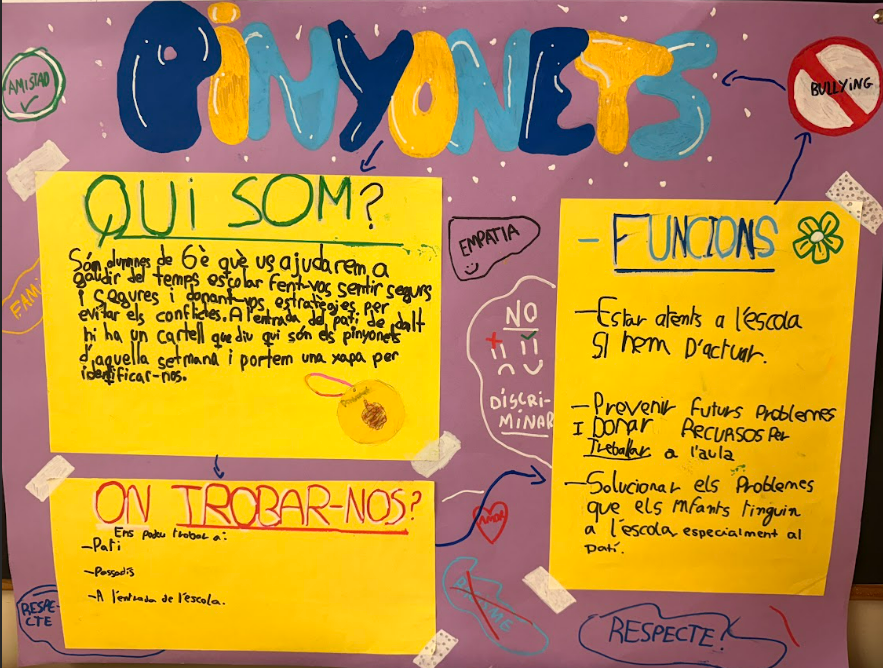 PINYONETS
AMISTAD
BULLYING
QUI SOM?
Són alumnes de 6è què us ajudarem a
gaudir del temps escolar fent-vos sentir segurs
i segures i donant-vos estratègies per
evitar els conflictes. A l'entrada del pati de dalt
hi ha un cartell que diu qui són els pinyonets
d'aquella setmana i portem una xapa per
identificar-nos.
EMPATIA
FAMI
NO
DISCRI-
MINAR
- FUNCIONS
-Estar atents a l'escola
SI hem D'actuar.
-Prevenir Futurs Problemes
I Donar RECURSOS Per
Treballar a l'aula
-Solucionar els Problemes
que els infants tinguin
a l'escola especialment al
Pati.
ON TROBAR-NOS?
Ens podeu trobar a:
-Pati
-Passadís
-A l'entrada de l'escola.
AMOR
RESPE-
CTE
RESPECTE!